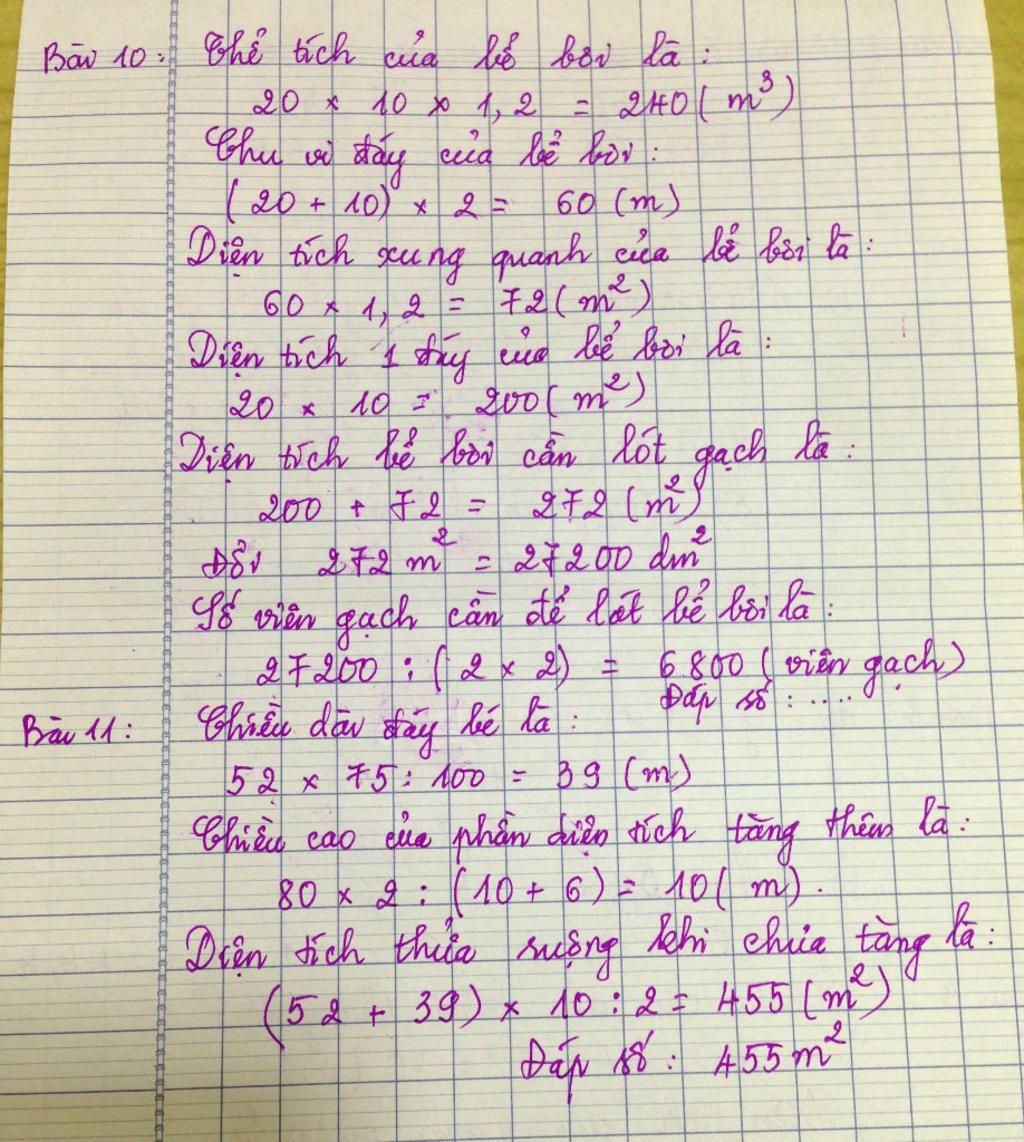 Bài 10: Thể tích của bể bơi là:
20 × 10 × 1,2 = 240 (m³)
Chu vi đáy của bể bơi:
(20 + 10) × 2 = 60 (m)
Diện tích xung quanh của bể bơi là:
60 × 1,2 = 72 (m²)
Diện tích 1 đáy của bể bơi là:
20 × 10 = 200 (m²)
Diện tích bể bơi cần lót gạch là:
200 + 72 = 272 (m²)
Đổi 272 m² = 27200 dm²
Số viên gạch cần để lát bể bơi là:
27200 : (2 × 2) = 6800 (viên gạch)
Đáp số: ....
Bài 11: Chiều dài đáy bé là:
52 × 75 : 100 = 39 (m)
Chiều cao của phần diện tích tăng thêm là:
80 × 2 : (10 + 6) = 10 (m).
Diện tích thửa ruộng khi chưa tăng là:
(52 + 39) × 10 : 2 = 455 (m²)
Đáp số: 455 m²